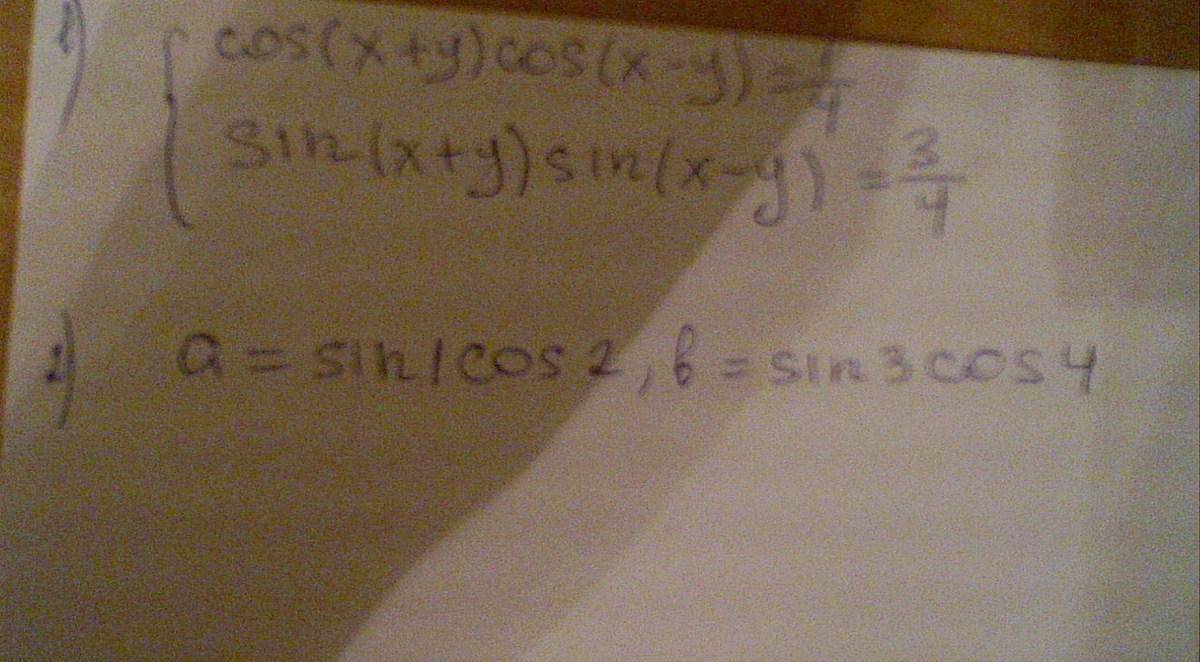 1) cos(x+y)cos(x-y)=1/4
sin(x+y)sin(x-y)=3/4
2) a=sin1cos2, в=sin3cos4